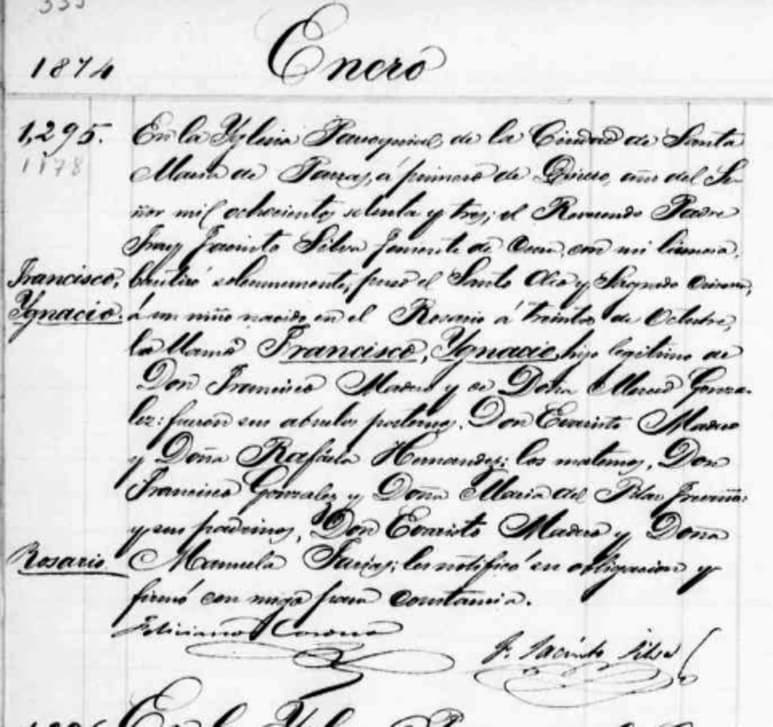 335
1874 Enero
1,295. En la Yglesia Parroquial de la Ciudad de Santa
1178 Maria de Parras, á primero de Enero, año del Se-
ñor mil ochocientos setenta y tres; el Reverendo Padre
Fray Jacinto Silva Teniente de Cura, con mi licencia,
Francisco, bautizó solemnemente, puso el Santo Oleo y Sagrado Crisma,
Ygnacio. á un niño nacido en el Rosario á treinta de Octubre,
lo llamó Francisco, Ygnacio, hijo legitimo de
Don Francisco Madero y de Doña Merced Gonza-
lez: fueron sus abuelos paternos, Don Evaristo Madero
y Doña Rafaela Hernandez; los maternos, Don
Francisco Gonzalez y Doña Maria del Pilar Treviño:
y sus padrinos, Don Evaristo Madero y Doña
Rosario. Manuela Farias; les notificó su obligacion y
firmó con migo para constancia.
Feliciano Cordero
F. Jacinto Silva
En la Ygle